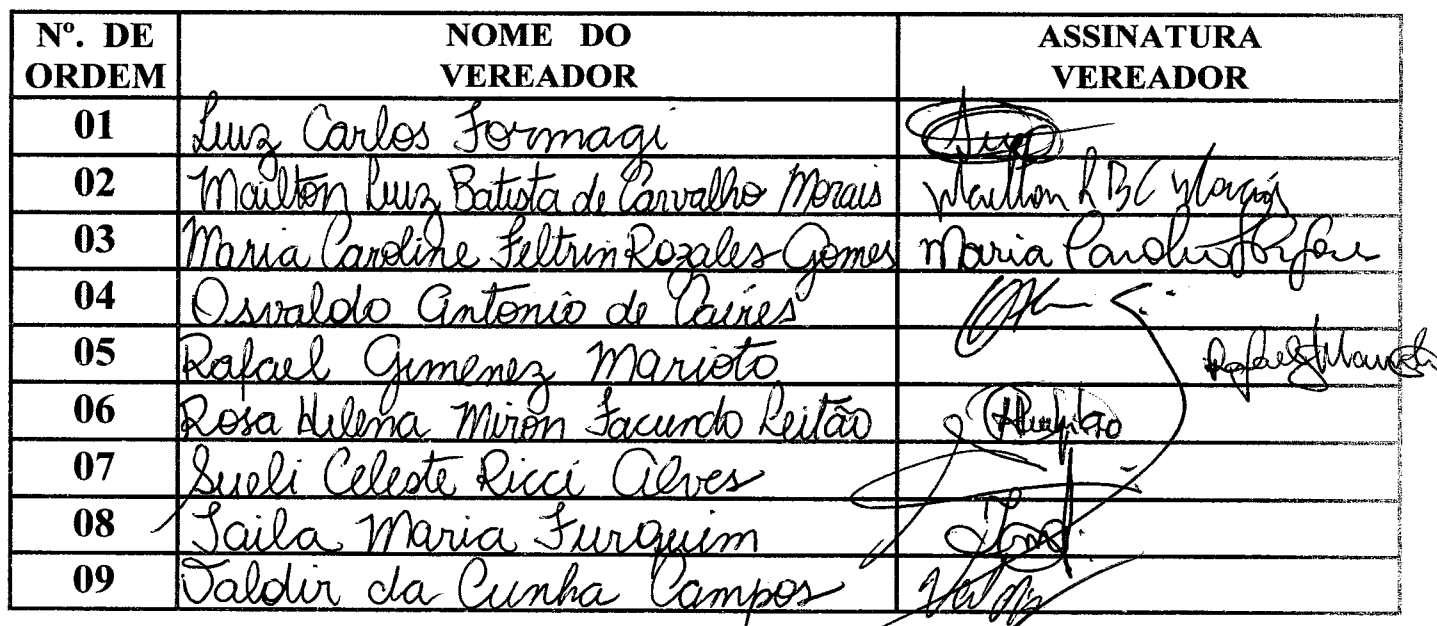 Nº. DE ORDEM NOME DO VEREADOR ASSINATURA VEREADOR
01 Luiz Carlos Formagi
02 Mailton Luiz Batista de Carvalho Morais Mailton L B C Morais
03 Maria Caroline Feltrin Rozales Gomes Maria
04 Osvaldo Antonio de Caires
05 Rafael Gimenez Marioto
06 Rosa Helena Miron Facundo Leitão
07 Sueli Celeste Ricci Alves
08 Taila Maria Furquim
09 Valdir da Cunha Campos